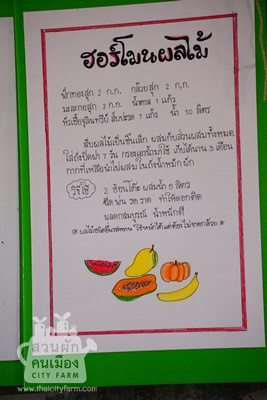 ฮอร์โมนผลไม้
ฟักทองสุก 2 ก.ก. กล้วยสุก 2 ก.ก.
มะละกอสุก 2 ก.ก. น้ำตาล 1 แก้ว
หัวเชื้อจุลินทรีย์ สับปะรด 1 แก้ว น้ำ 10 ลิตร
สับผลไม้เป็นชิ้นเล็ก ผสมกับส่วนผสมทั้งหมด
ใส่ถังปิดฝา 7 วัน กรองเอาน้ำมาใช้ เก็บได้นาน 3 เดือน
กากที่เหลือนำไปผสมในถังน้ำหมักผัก
วิธีใช้ 2 ช้อนโต๊ะ ผสมน้ำ 5 ลิตร
ฉีด พ่น รด ราด ทำให้ดอกติด
ผลดกสมบูรณ์ น้ำหนักดี
สวนผัก
คนเมือง
CITY FARM
www.thaicityfarm.com